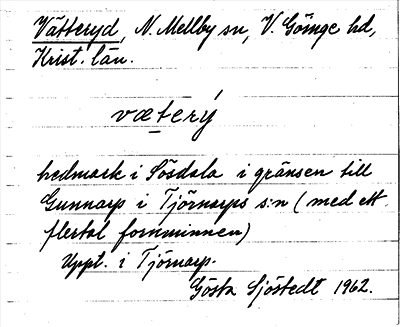 Vätteryd, N. Mellby sn, V. Göinge hd,
Krist. län.
væterý
hedmark i Sösdala i gränsen till
Gunnarp i Tjörnarps s:n (med ett
flertal fornminnen)
Uppt. i Tjörnarp.
Gösta Sjöstedt 1962.